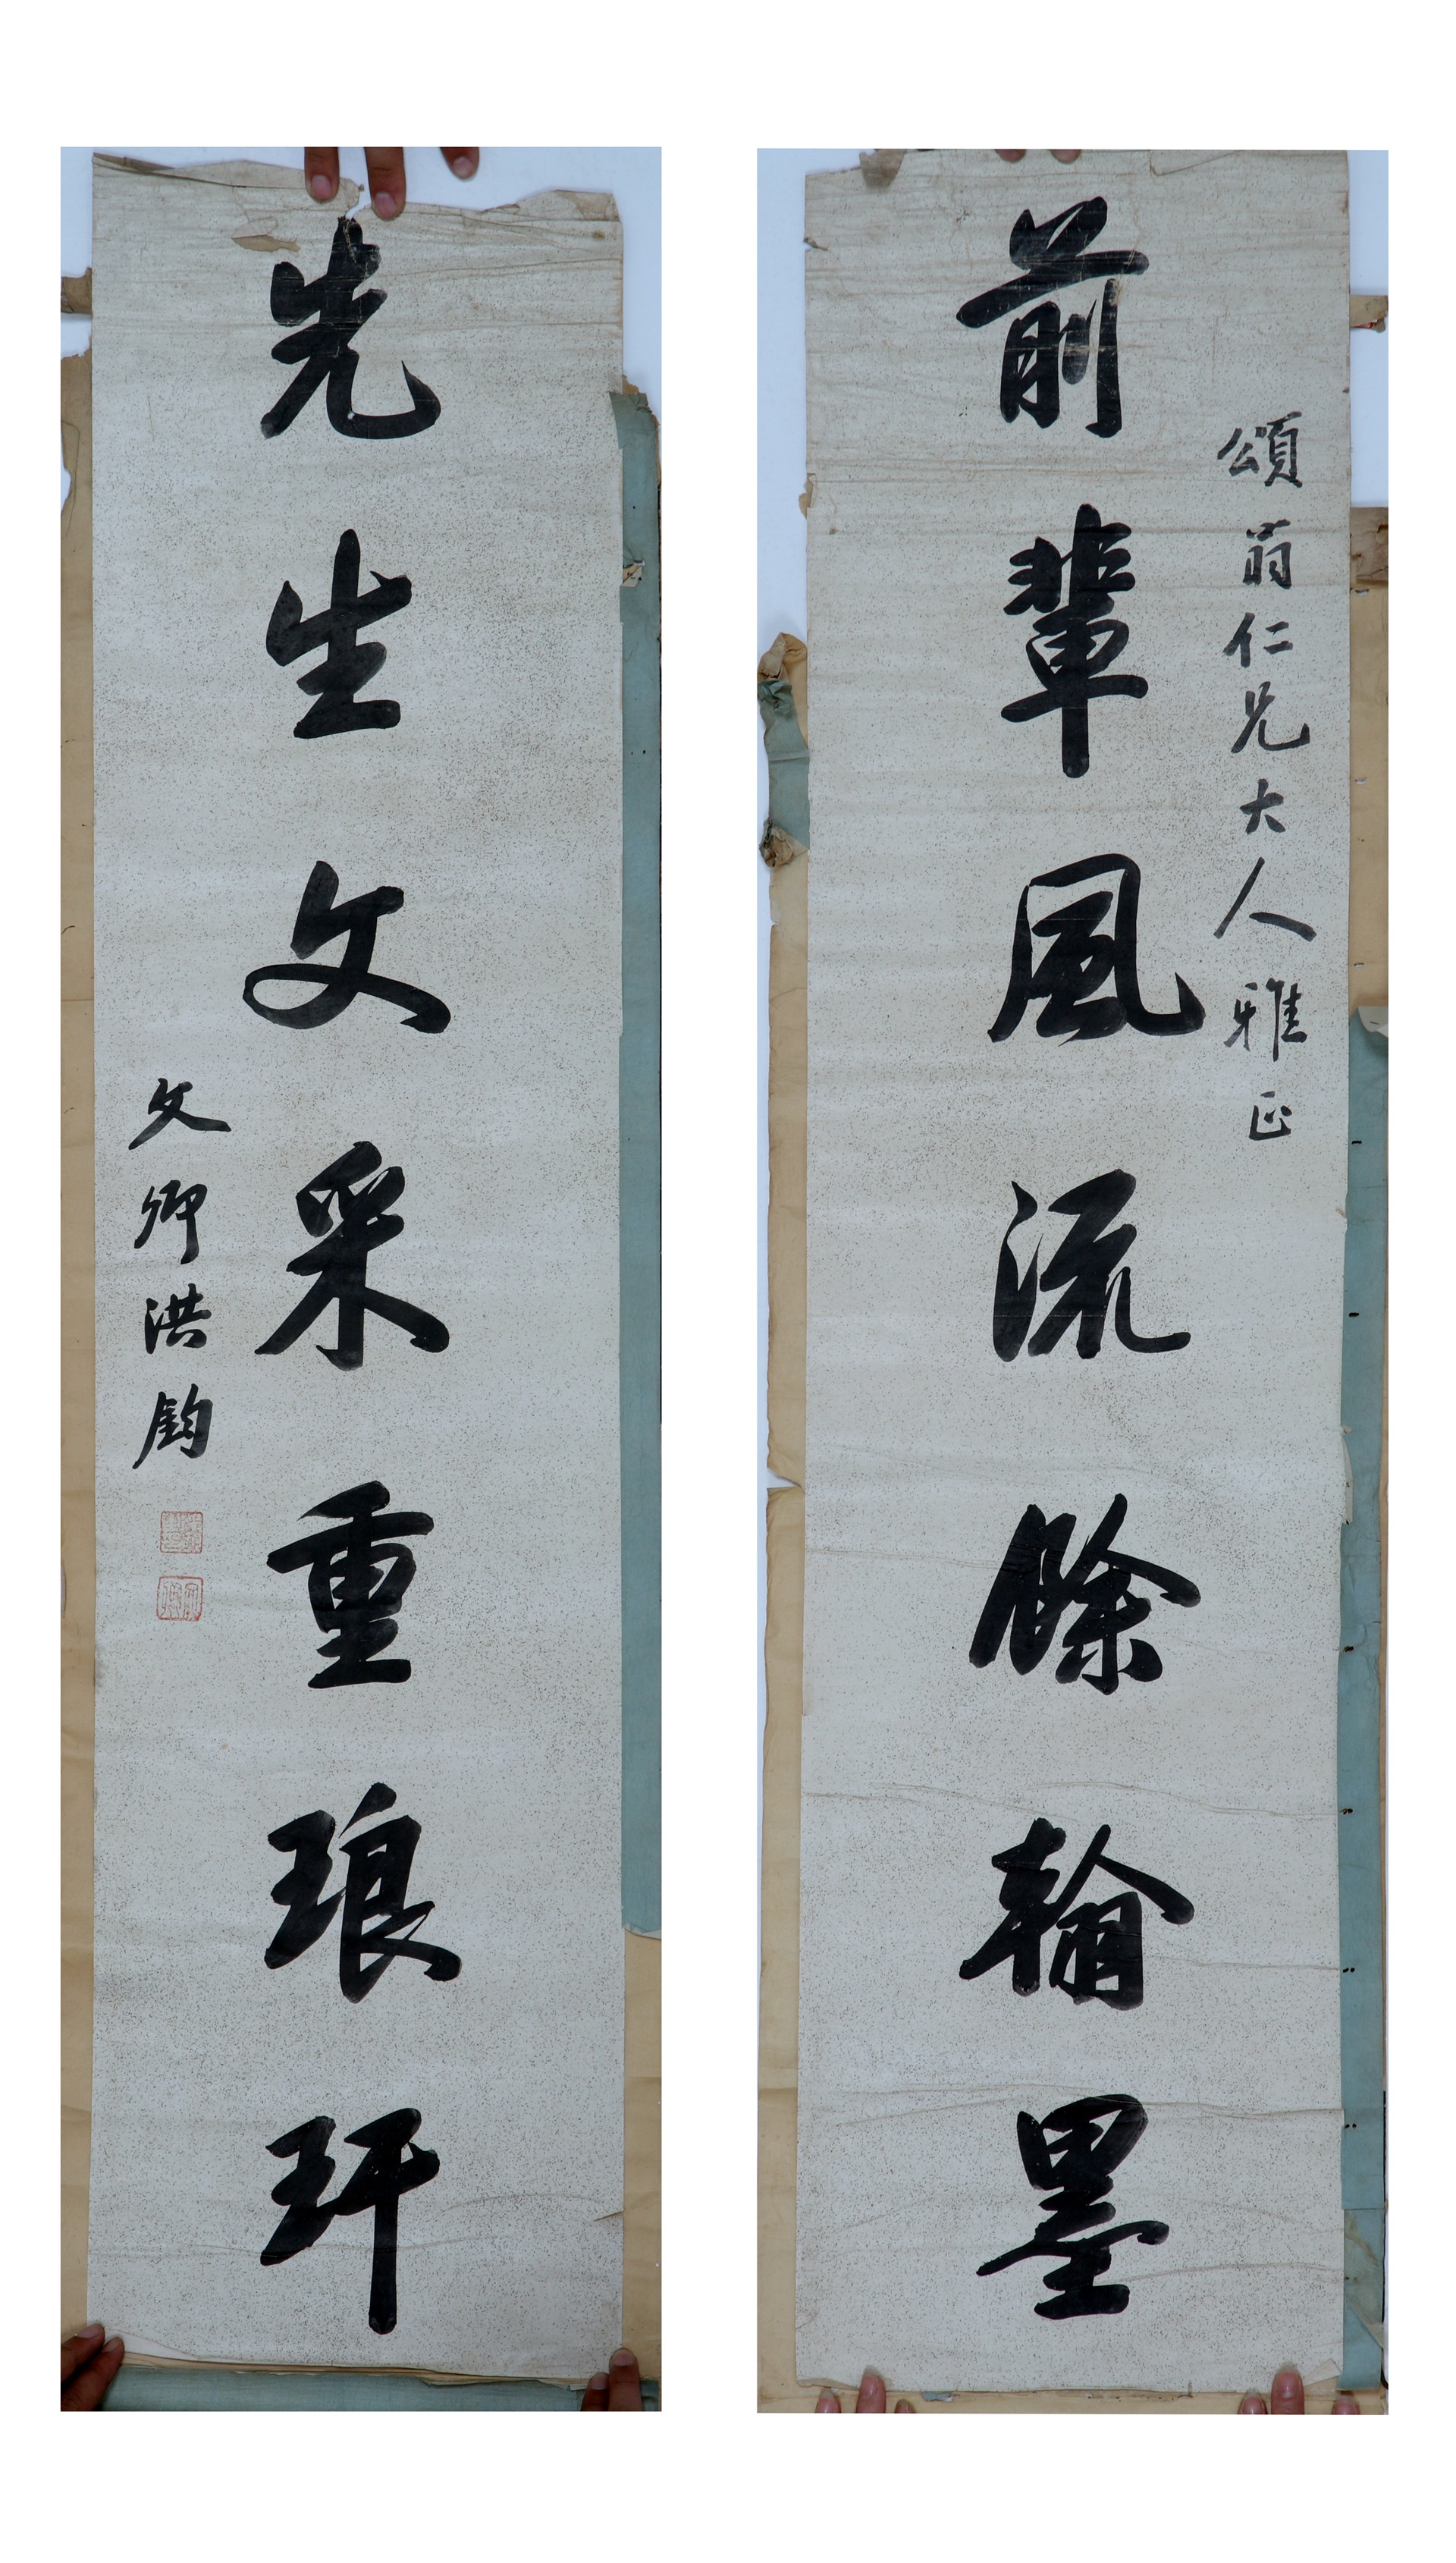 頌翁仁兄大人雅正
前輩風流餘翰墨
先生文采重琅玕
文卿洪鈞